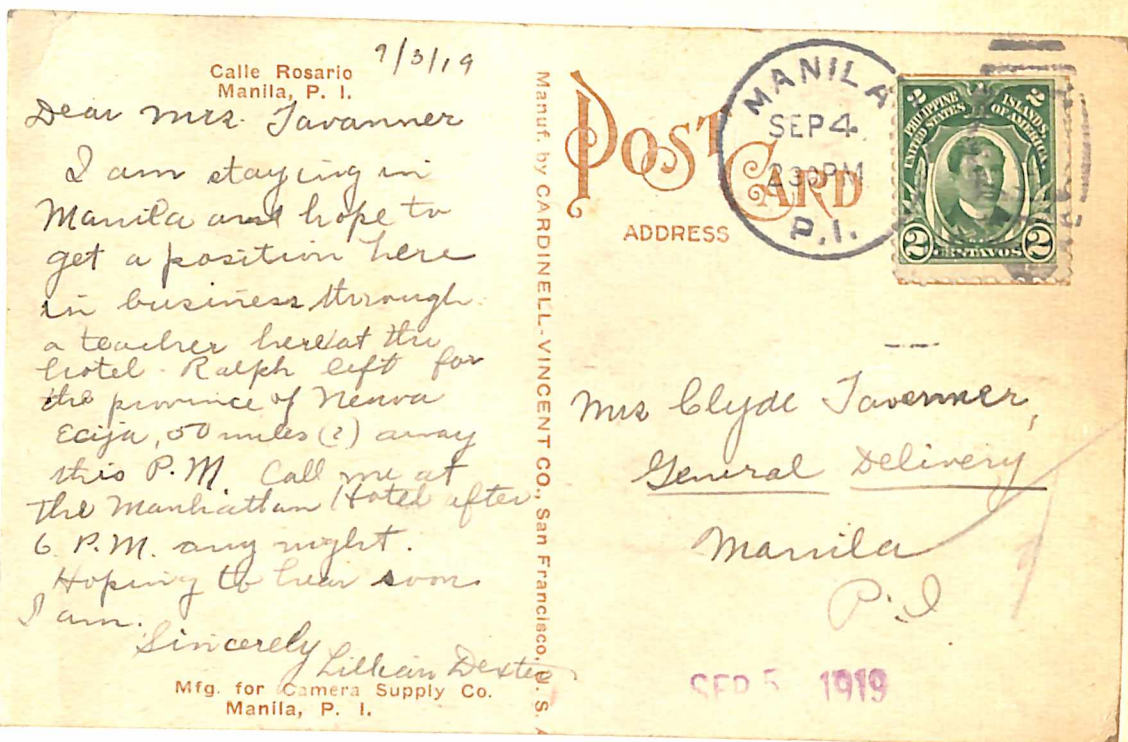 9/3/19
Calle Rosario
Manila, P. I.
Dear Mrs. Tavanner
I am staying in
Manila and hope to
get a position here
in business through
a teacher here at the
hotel. Ralph left for
the province of Neuva
Ecija, 50 miles (?) away
this P.M. Call me at
the Manhattan Hotel after
6 P.M. any night.
Hoping to hear soon
I am.
Sincerely
Lillian Dexter
Mfg. for Camera Supply Co.
Manila, P. I.
Manuf. by CARDINELL-VINCENT CO., San Francisco, U. S. A
POST CARD
ADDRESS
MANILA
SEP 4
230PM
P.I.
2 2
PHILIPPINE ISLANDS
UNITED STATES OF AMERICA
2 CENTAVOS 2
Mrs Clyde Tavenner,
General Delivery
Manila
P.I
SEP 5 1919